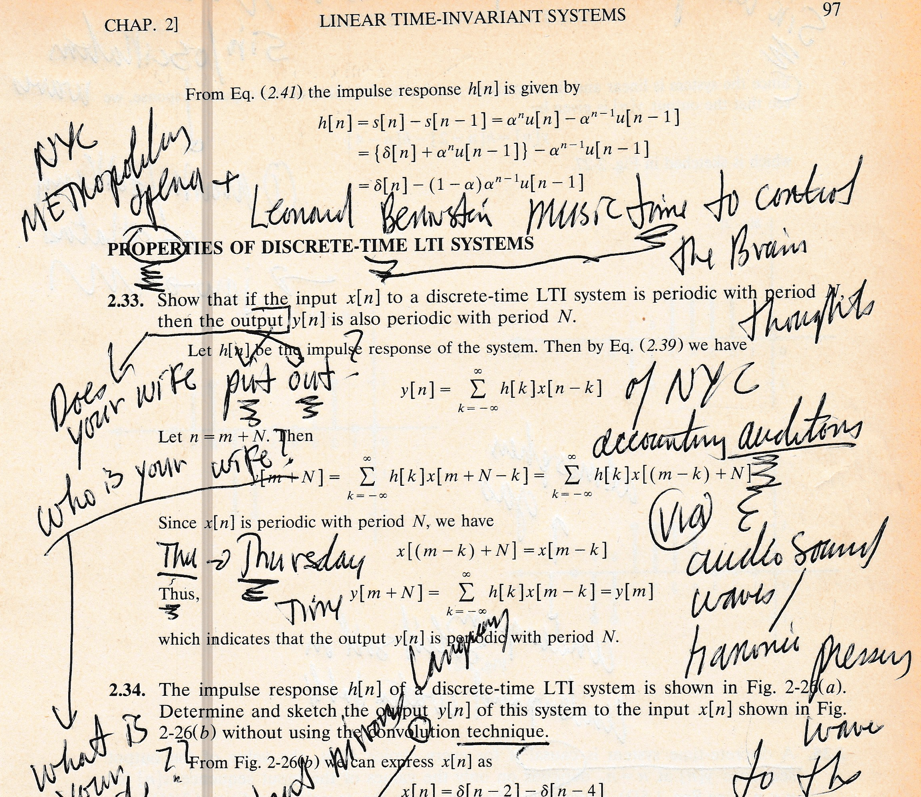 CHAP. 2]
LINEAR TIME-INVARIANT SYSTEMS
97
From Eq. (2.41) the impulse response h[n] is given by
h[n] = s[n] − s[n − 1] = αⁿu[n] − αⁿ⁻¹u[n − 1]
= {δ[n] + αⁿu[n − 1]} − αⁿ⁻¹u[n − 1]
= δ[n] − (1 − α)αⁿ⁻¹u[n − 1]
NYC
METropolitan
+
Leonard Bernstein music time to control
the Brain
PROPERTIES OF DISCRETE-TIME LTI SYSTEMS
2.33. Show that if the input x[n] to a discrete-time LTI system is periodic with period N,
then the output y[n] is also periodic with period N.
thoughts
Let h[n] be the impulse response of the system. Then by Eq. (2.39) we have
Does
your wife put out?
y[n] = ∑ h[k]x[n − k]
k = −∞
∞
of NYC
accounting auditors
Let n = m + N. Then
Who is your wife?
y[m + N] = ∑ h[k]x[m + N − k] = ∑ h[k]x[(m − k) + N]
k = −∞
∞
k = −∞
∞
via
Since x[n] is periodic with period N, we have
x[(m − k) + N] = x[m − k]
audio sound
waves/
Thu → Thursday
Thus,
y[m + N] = ∑ h[k]x[m − k] = y[m]
k = −∞
∞
Time
which indicates that the output y[n] is periodic with period N.
Language
pressure
2.34. The impulse response h[n] of a discrete-time LTI system is shown in Fig. 2-26(a).
Determine and sketch the output y[n] of this system to the input x[n] shown in Fig.
2-26(b) without using the convolution technique.
wave
to the
What is
your
??
From Fig. 2-26(b) we can express x[n] as
x[n] = δ[n − 2] − δ[n − 4]